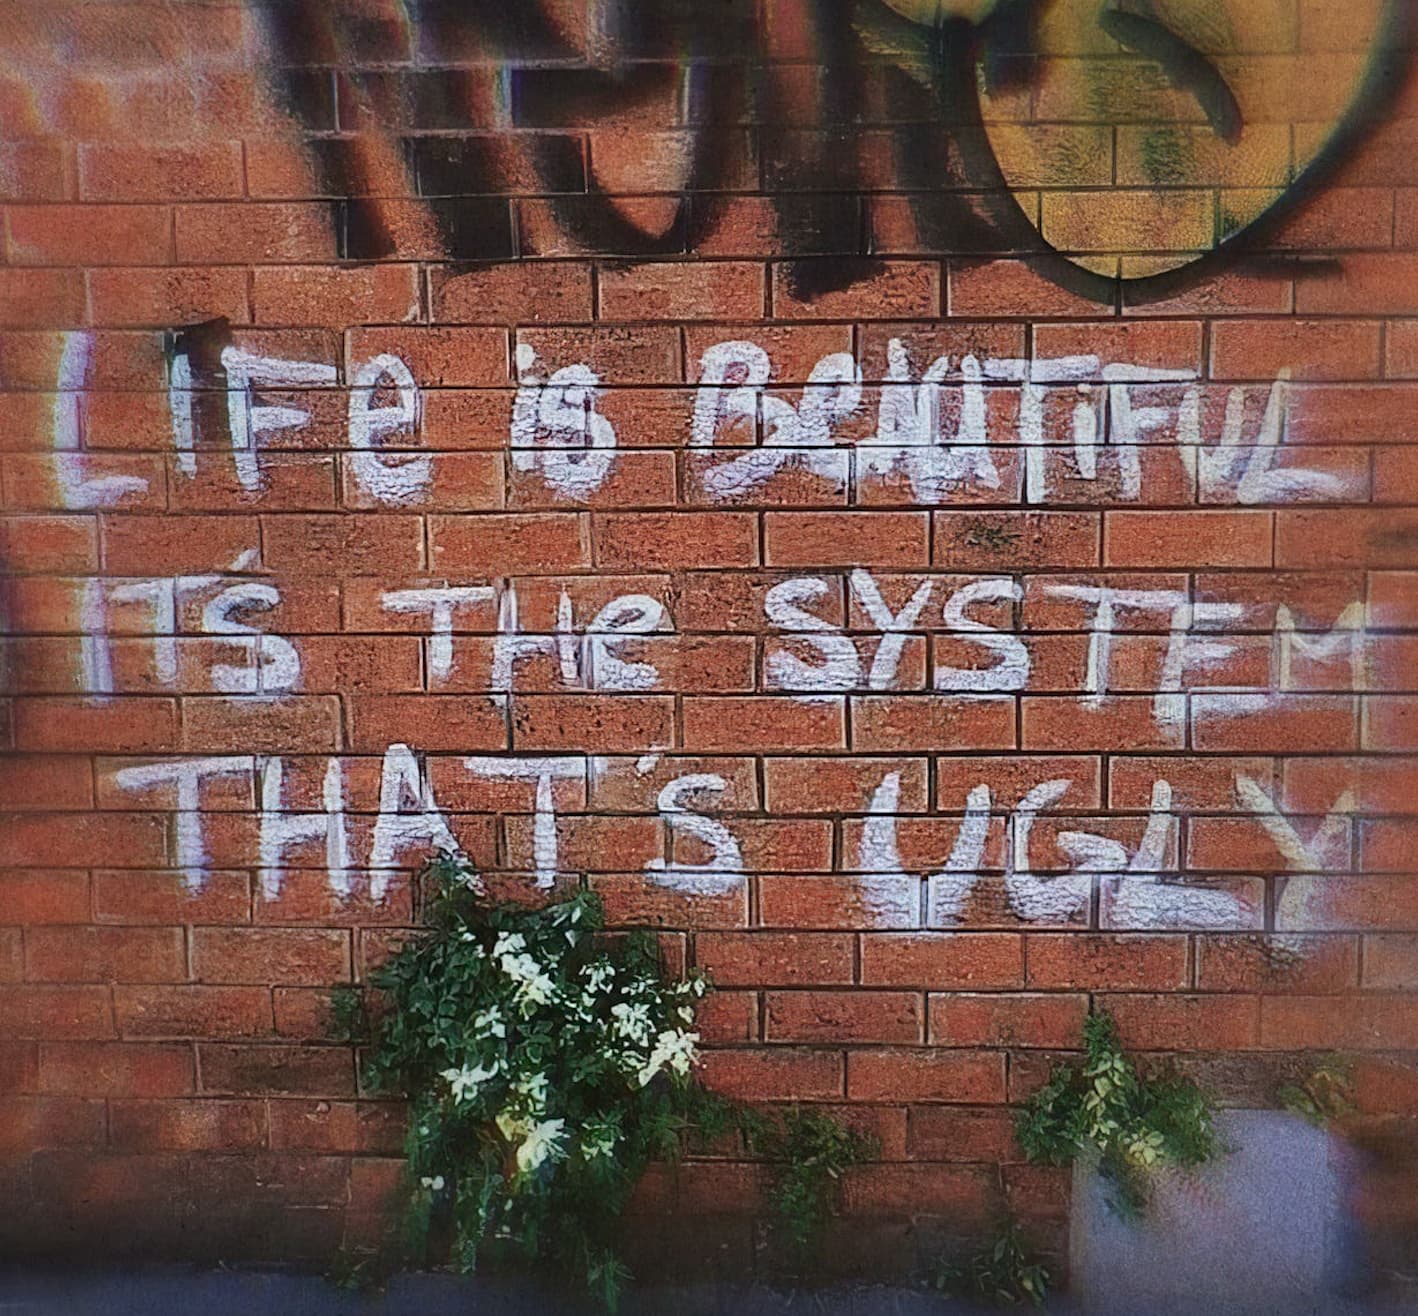 LIFe is BeAUTiFUL
IT'S THe SYSTEM
THAT'S UGLY